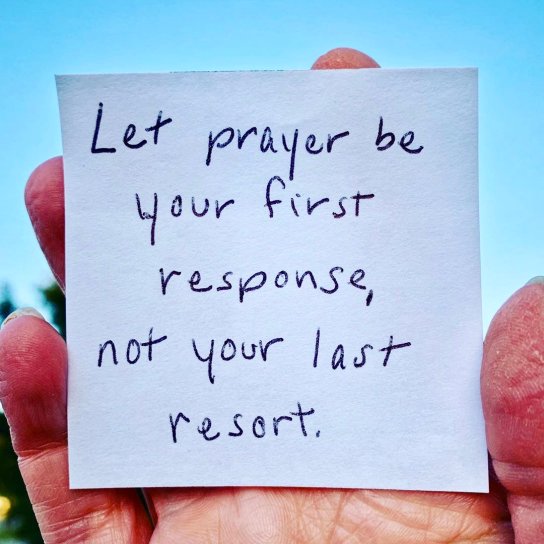 Let prayer be
your first
response,
not your last
resort.